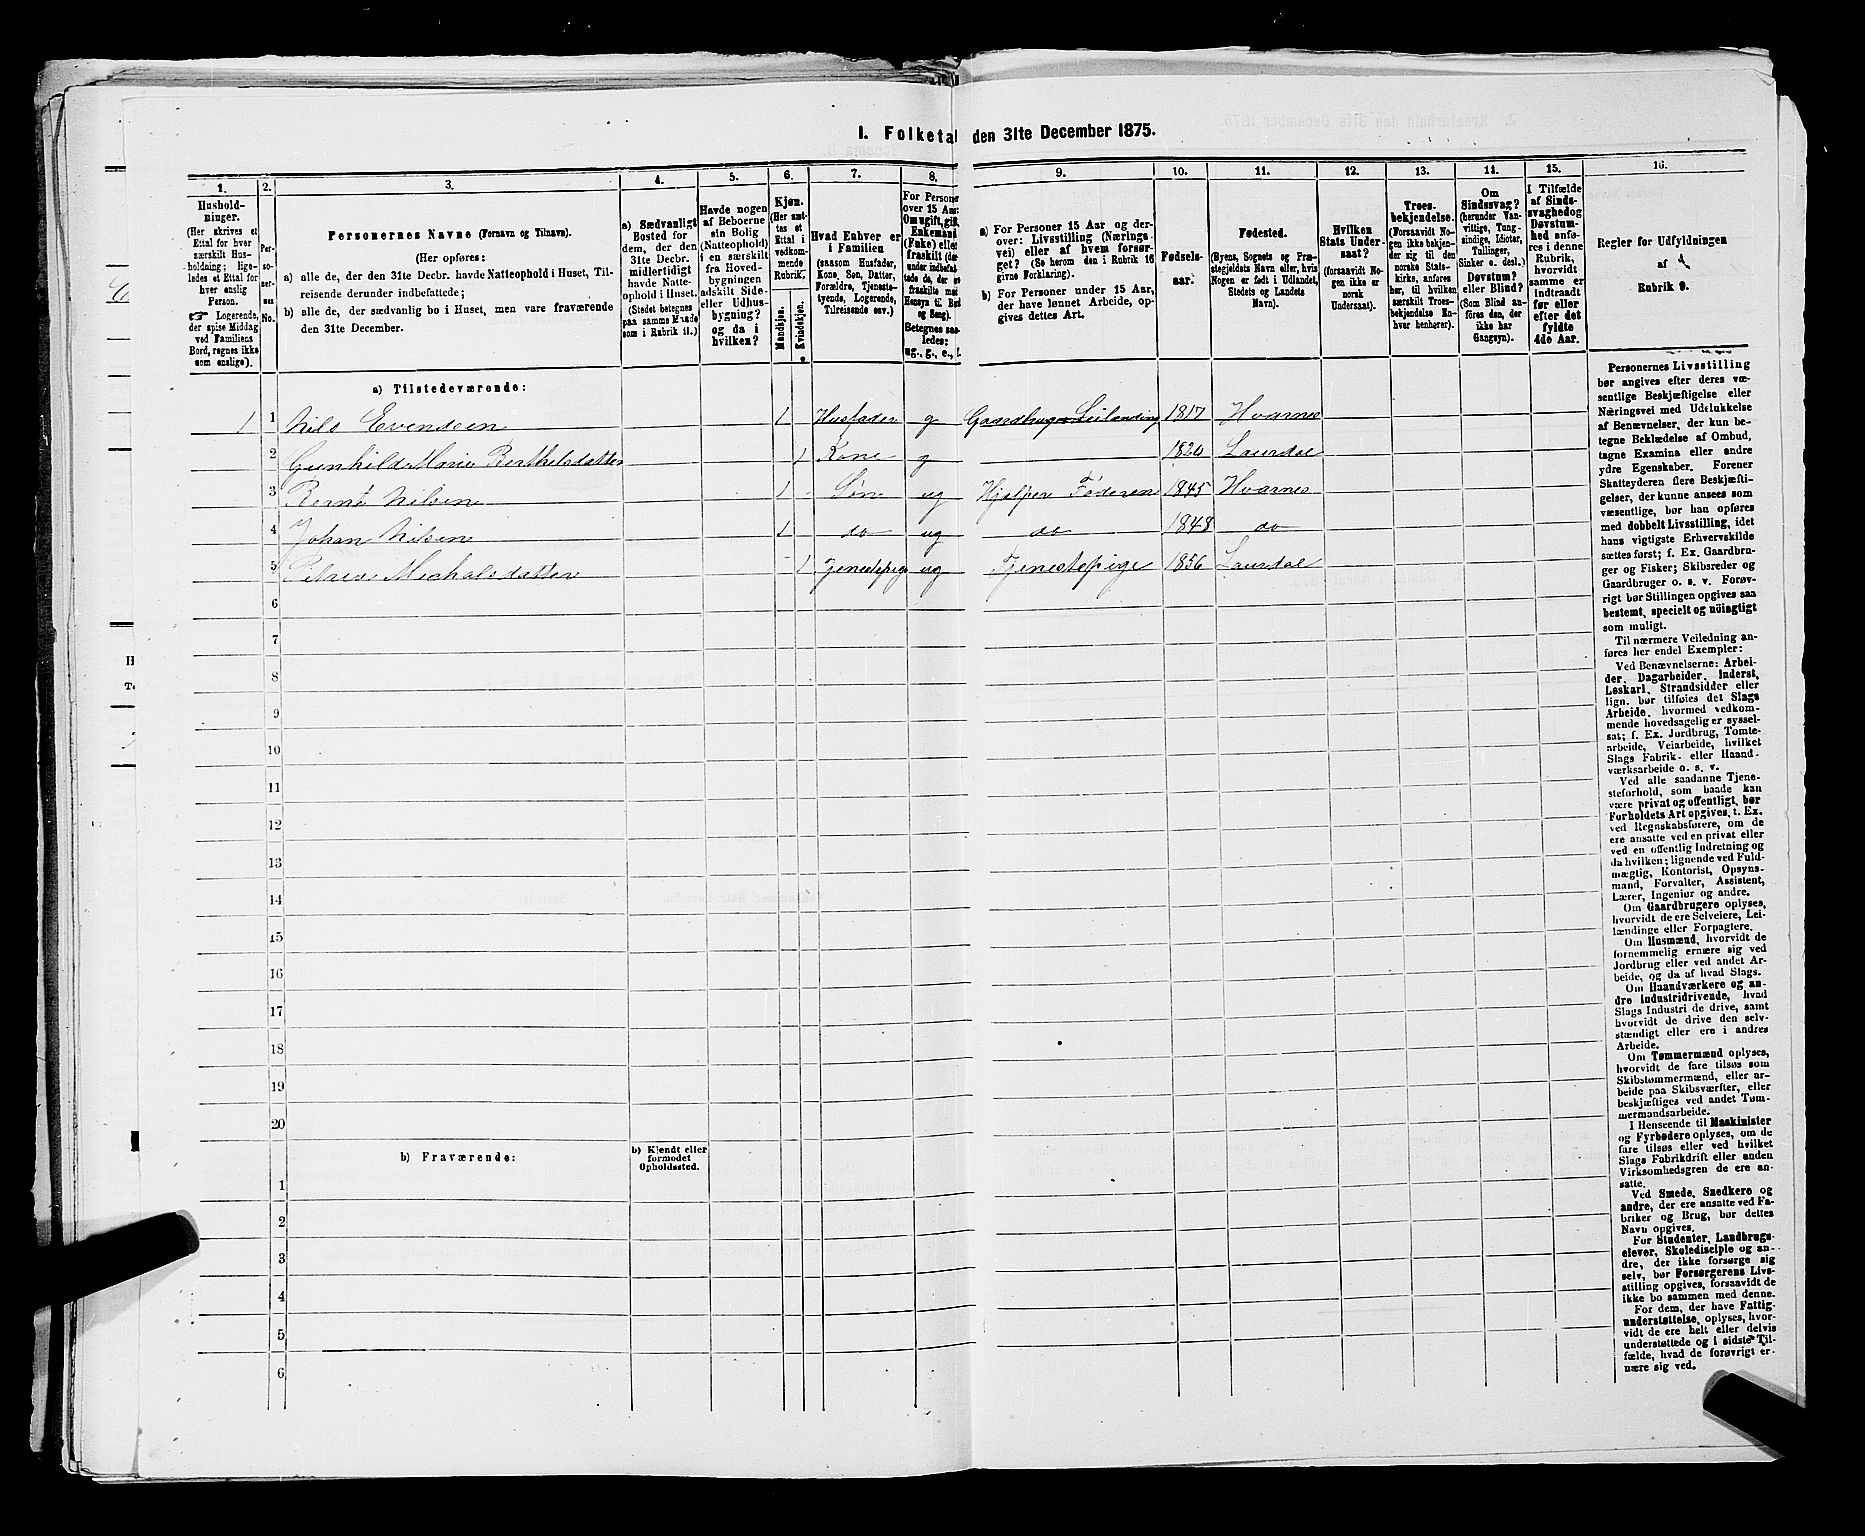 1. Folketal den 31te December 1875.
1. 2. 3. 4. 5. 6. 7. 8. 9. 10. 11. 12. 13. 14. 15. 16.
Hushold-
ninger.
(Her skrives et
Ettal for hver
særskilt Hus-
holdning; lige-
ledes et Ettal for
hver enslig
Person.
☞ Logerende,
der spise Middag
ved Familiens
Bord, regnes ikke
som enslige).
Per-
so-
ner-
nes
No.
Personernes Navne (Fornavn og Tilnavn).
(Her opføres:
a) alle de, der den 31te Decbr. havde Natteophold i Huset, Til-
reisende derunder indbefattede;
b) alle de, der sædvanlig bo i Huset, men vare fraværende
den 31te December.
a) Sædvanligt
Bosted for
dem, der den
31te Decbr.
midlertidigt
havde Natte-
ophold i Huset.
(Stedet betegnes
paa samme Maade
som i Rubrik 11.)
Havde nogen
af Beboerne
sin Bolig
(Natteophold)
i en særskilt
fra Hoved-
bygningen
adskilt Side-
eller Udhus-
bygning?
og da i
hvilken?
Kjøn.
(Her sæt-
tes et
Ettal i
vedkom-
mende
Rubrik.
Mandkjøn.
Kvindekjøn.
Hvad Enhver er
i Familien
(saasom Husfader,
Kone, Søn, Datter,
Forældre, Tjeneste-
tyende, Logerende,
Tilreisende osv.)
For Personer
over 15 Aar:
Om ugift, gift,
Enkemand
(Enke) eller
fraskilt
Betegnes saa-
ledes:
ug., g., e., f.
a) For Personer 15 Aar og der-
over: Livsstilling (Nærings-
vei) eller af hvem forsør-
get? (Se herom den i Rubrik 16
givne Forklaring).
b) For Personer under 15 Aar,
der have lønnet Arbeide, op-
gives dettes Art.
Fødsels-
aar.
Fødested.
(Byens, Sognets og Præ-
stegjeldets Navn eller, hvis
Nogen er født i Udlandet,
Stedets og Landets
Navn).
Hvilken
Stats Under-
saat?
(forsaavidt No-
gen ikke er
norsk
Undersaat).
Troes-
bekjendelse.
(Forsaavidt No-
gen ikke bekjen-
der sig til den
norske Stats-
kirke, anføres
her, til hvilken
særskilt Troes-
bekjendelse En-
hver henhører).
Om
Sindssvag?
(herunder Van-
vittige, Tung-
sindige, Idioter,
Tullinger,
Sinker o. desl.)
Døvstum?
eller Blind?
(Som Blind an-
føres den, der
ikke har
Gangsyn).
I Tilfælde
af Sinds-
svaghed og
Døvstum-
hed anfø-
res i denne
Rubrik,
hvorvidt
samme er
indtraadt
før eller
efter det
fyldte
4de Aar.
Regler for Udfyldningen
af
Rubrik 9.
a) Tilstedeværende:
1 1 Nils Evendsen 1 Husfader g Gaardbruger Leilænding 1817 Hvarnes
2 Gunhild Marie Berthelsdatter 1 Kone g 1820 Laurdal
3 Bernt Nilsen 1 Søn ug Hjelper Føderen 1845 Hvarnes
4 Johan Nilsen 1 do ug do 1848 do
5 Michalsdatter 1 Tjenestepige ug Tjenestepige 1856 Laurdal
6
7
8
9
10
11
12
13
14
15
16
17
18
19
20
b) Fraværende: b) Kjendt eller
formodet
Opholdssted.
1
2
3
4
5
6
Personernes Livsstilling
bør angives efter deres væ-
sentlige Beskjæftigelse eller
Næringsvei med Udelukkelse
af Benævnelser, der kun be-
tegne Beklædelse af Ombud,
tagne Examina eller andre
ydre Egenskaber. Forener
Skatteyderen flere Beskjæfti-
gelser, der kunne ansees som
væsentlige, bør han opføres
med dobbelt Livsstilling, idet
hans vigtigste Erhvervskilde
sættes først; f. Ex. Gaardbru-
ger og Fisker; Skibsreder og
Gaardbruger o. s. v. Forøv-
rigt bør Stillingen opgives saa
bestemt, specielt og nöiagtigt
som muligt.
Til nærmere Veiledning an-
føres her endel Exempler:
Ved Benævnelserne: Arbei-
der, Dagarbeider, Inderst,
Løskarl, Strandsidder eller
lign. bør tilføies det Slags
Arbeide, hvormed vedkom-
mende hovedsagelig er syssel-
sat; f. Ex. Jordbrug, Tomte-
arbeide, Veiarbeide, hvilket
Slags Fabrik- eller Haand-
værksarbeide o. s. v.
Ved alle saadanne Tjene-
steforhold, som baade kan
være privat og offentligt, bør
Forholdets Art opgives, t. Ex.
ved Regnskabsførere, om de
ere ansatte ved en privat eller
ved en offentlig Indretning og
da hvilken; lignende ved Fuld-
mægtig, Kontorist, Opsyns-
mand, Forvalter, Assistent,
Lærer, Ingeniør og andre.
Om Gaardbrugere oplyses,
hvorvidt de ere Selveiere, Lei-
lændinge eller Forpagtere.
Om Husmænd, hvorvidt de
fornemmelig ernære sig ved
Jordbrug eller ved andet Ar-
beide, og da af hvad Slags.
Om Haandværkere og an-
dre Industridrivende, hvad
Slags Industri de drive, samt
hvorvidt de drive den selv-
stændigt eller ere i andres
Arbeide.
Om Tømmermænd oplyses,
hvorvidt de fare tilsøs som
Skibstømmermænd, eller ar-
beide paa Skibsværfter, eller
beskjæftiges ved andet Tøm-
mermandsarbeide.
I Henseende til Maskinister
og Fyrbødere oplyses, om de
fare tilsøs eller ved hvilket
Slags Fabrikdrift eller anden
Virksomhedsgren de ere an-
satte.
Ved Smede, Snedkere og
andre, der ere ansatte ved Fa-
briker og Brug, bør dettes
Navn opgives.
For Studenter, Landbrugs-
elever, Skoledisciple og an-
dre, der ikke forsørge sig
selv, bør Forsørgerens Livs-
stilling opgives, forsaavidt de
ikke bo sammen med denne.
For dem, der have Fattig-
understøttelse, oplyses, hvor-
vidt de ere helt eller delvis
understøttede og i sidste Til-
fælde, hvad de forøvrigt er-
nære sig ved.